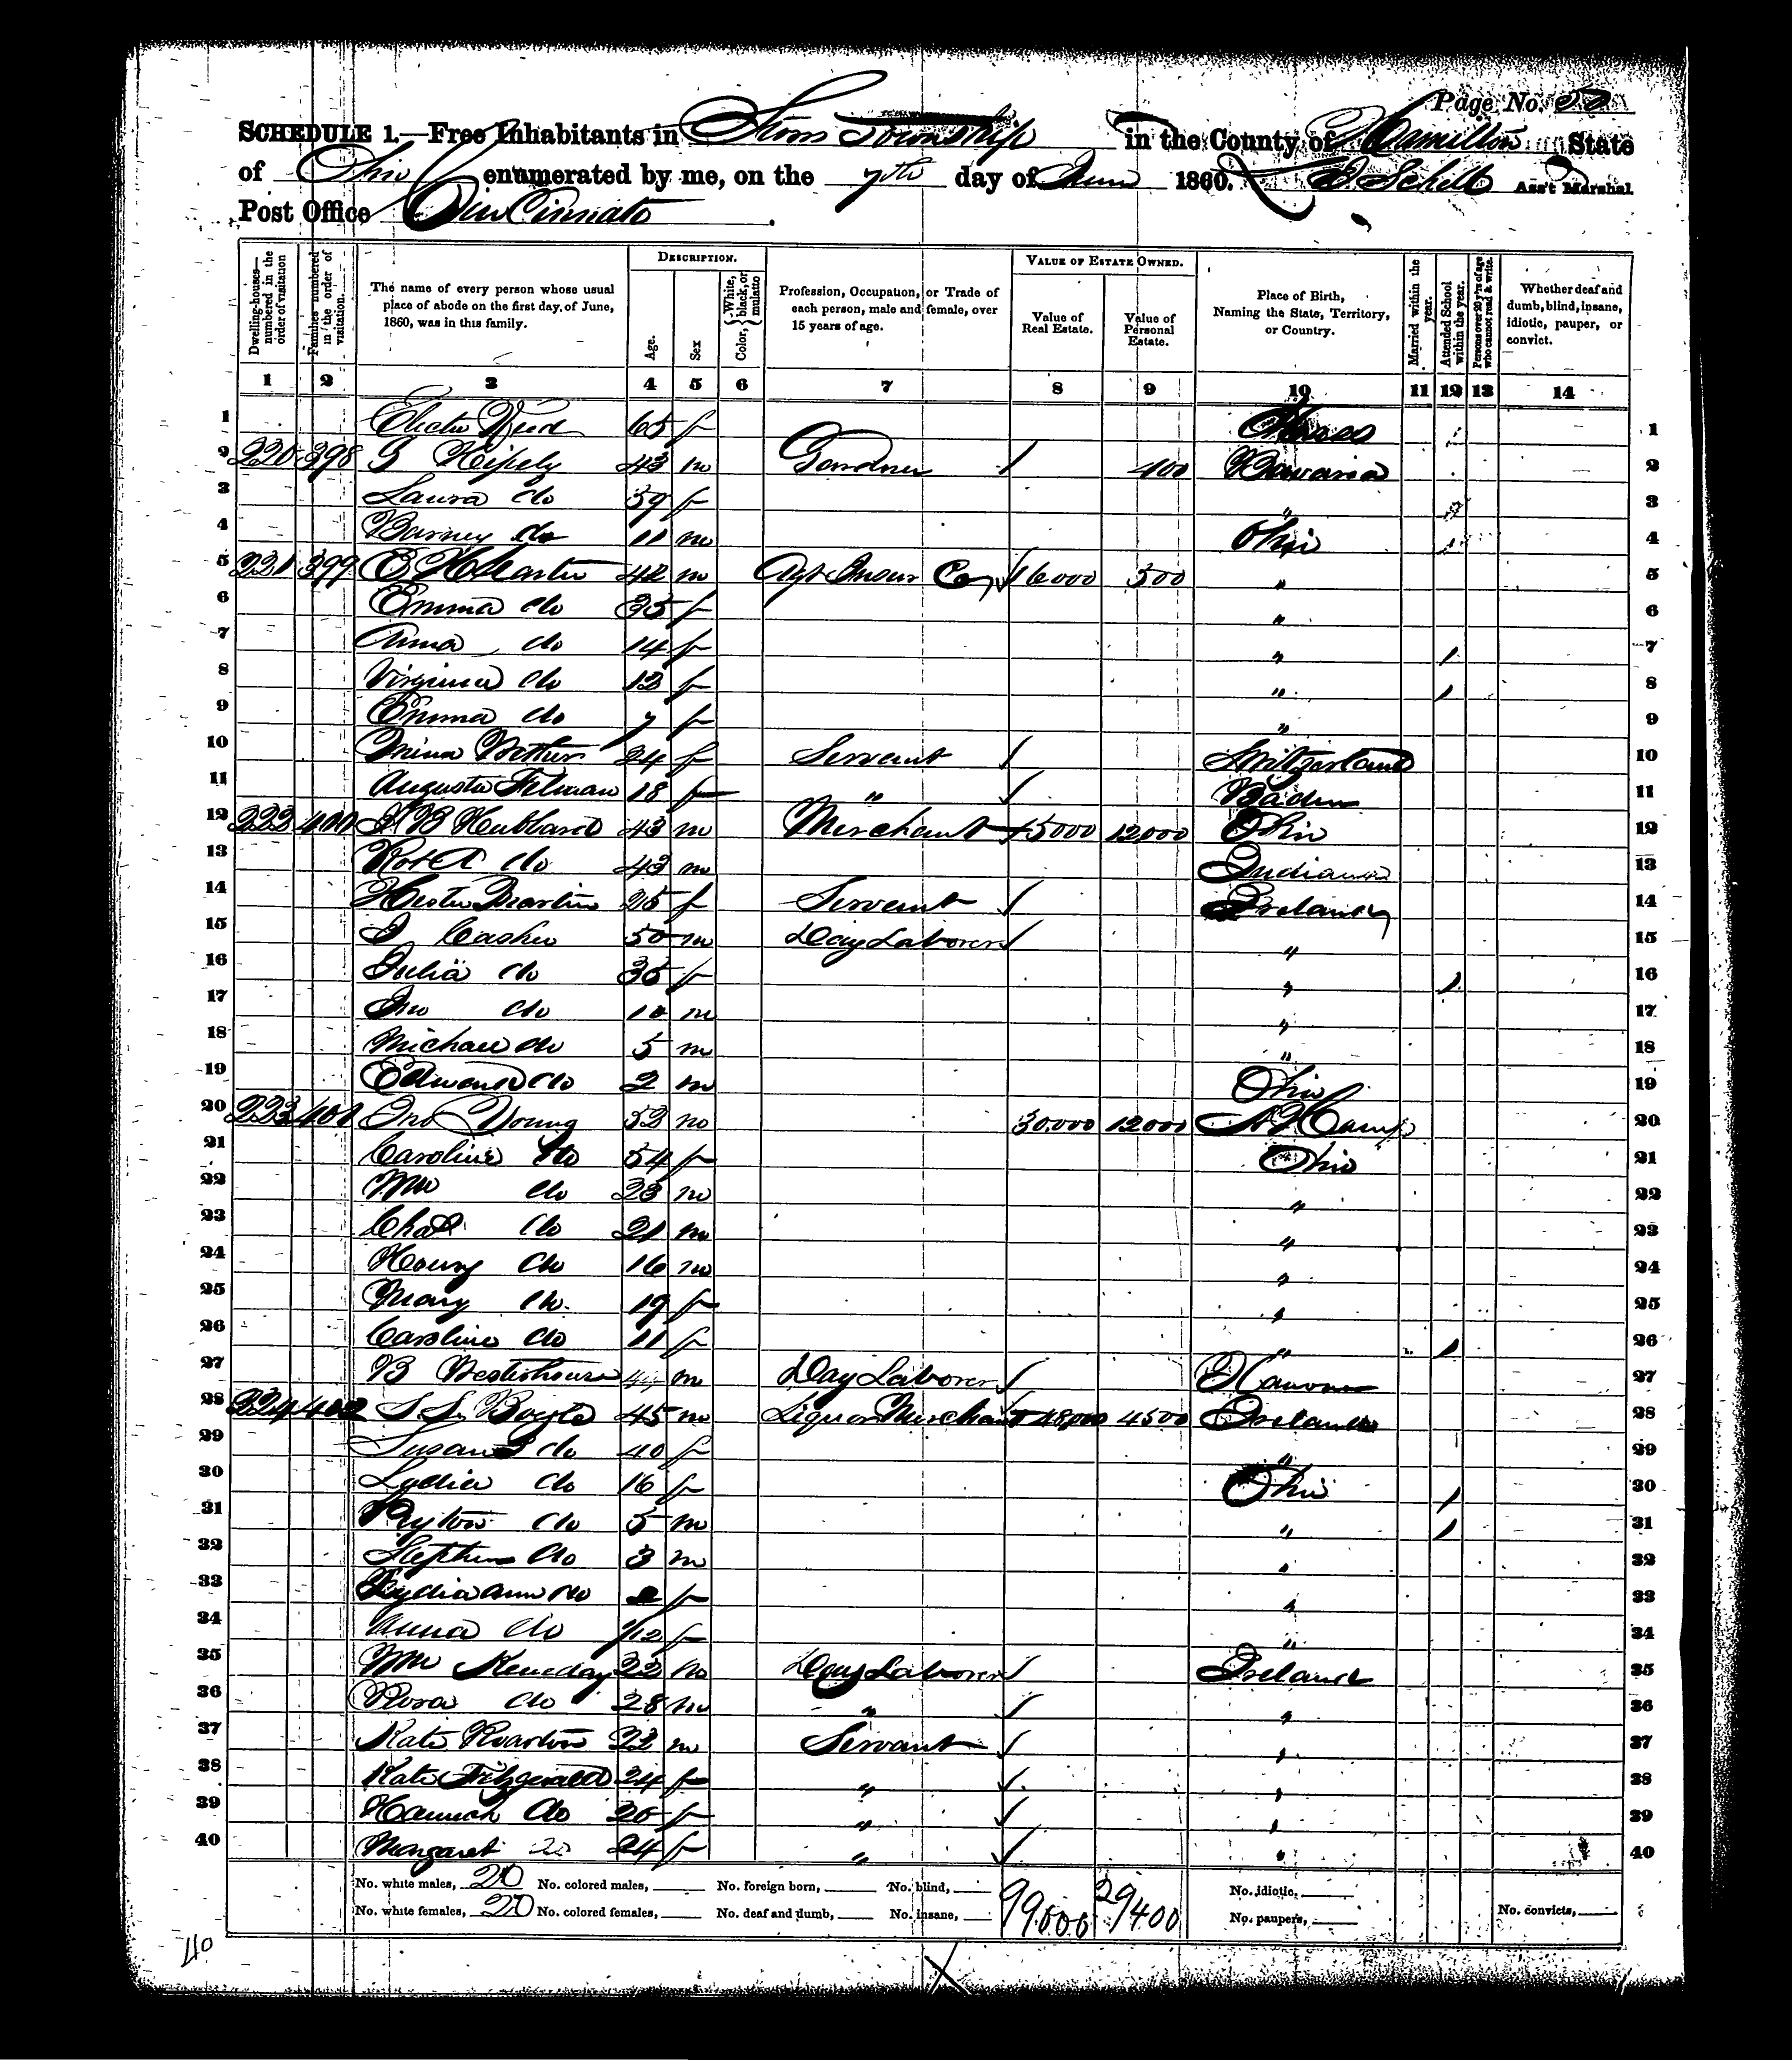 Page No.
SCHEDULE 1.—Free Inhabitants in Township in the County of Hamilton State
of Ohio enumerated by me, on the 7th day of June 1860. Ass't Marshal.
Post Office Cincinnati
Dwelling-houses—numbered in the order of visitation
Families numbered in the order of visitation.
The name of every person whose usual place of abode on the first day of June, 1860, was in this family.
DESCRIPTION.
Age.
Sex
Color, White, black, or mulatto
Profession, Occupation, or Trade of each person, male and female, over 15 years of age.
VALUE OF ESTATE OWNED.
Value of Real Estate.
Value of Personal Estate.
Place of Birth, Naming the State, Territory, or Country.
Married within the year.
Attended School within the year.
Persons over 20 y'rs of age who cannot read & write.
Whether deaf and dumb, blind, insane, idiotic, pauper, or convict.
1 2 3 4 5 6 7 8 9 10 11 12 13 14
1 65 f 1
2 220 398 G 43 m Gardner / 400 Bavaria 2
3 Laura do 39 f " 3
4 Barney do 11 m Ohio / 4
5 221 399 42 m Agt Insur Co / 6000 500 " 5
6 Emma do 35 f " 6
7 Anna do 14 f " / 7
8 Virginia do 12 f " / 8
9 Emma do 7 f " 9
10 24 f Servant / Switzerland 10
11 Augusta 18 f " / Baden 11
12 222 400 Hubbard 43 m Merchant 45000 12000 Ohio 12
13 do 43 m Indiana 13
14 Hester 25 f Servant / Ireland 14
15 50 m Day Laborer / " 15
16 Julia do 35 f " / 16
17 Jno do 10 m " 17
18 Michael do 5 m " 18
19 Edward do 2 m Ohio 19
20 223 401 Jno Young 52 m 30.000 12000 N Hamp 20
21 Caroline do 54 f Ohio 21
22 Wm do 23 m " 22
23 Chas do 21 m " 23
24 Henry do 16 m " 24
25 Mary do 19 f " 25
26 Caroline do 11 f " / 26
27 B Westerhouse m Day Laborer / 27
28 224 402 45 m Liquor Merchant 18,000 4500 Ireland 28
29 Susan do 40 f " 29
30 Lydia do 16 f Ohio / 30
31 Peyton do 5 m " / 31
32 Stephen do 3 m " 32
33 Lydia Ann do f " 33
34 Anna do /12 f " 34
35 Wm Keneday 22 m Day Laborer / Ireland 35
36 Rosa do 28 m " / " 36
37 Kate 22 m Servant / " 37
38 Kate Fitzgerald 24 f " / " 38
39 Hannah do 20 f " / " 39
40 Margaret do 24 f " / " 40
No. white males, 20 No. colored males, No. foreign born, No. blind, 99.000 29400 No. idiotic,
No. white females, 20 No. colored females, No. deaf and dumb, No. insane, No. paupers, No. convicts,
40